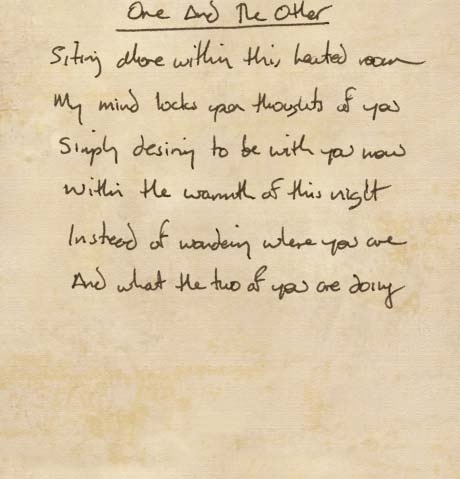 One And The Other
Siting alone within this heated room
My mind locks upon thoughts of you
Simply desiring to be with you now
Within the warmth of this night
Instead of wondering where you are
And what the two of you are doing